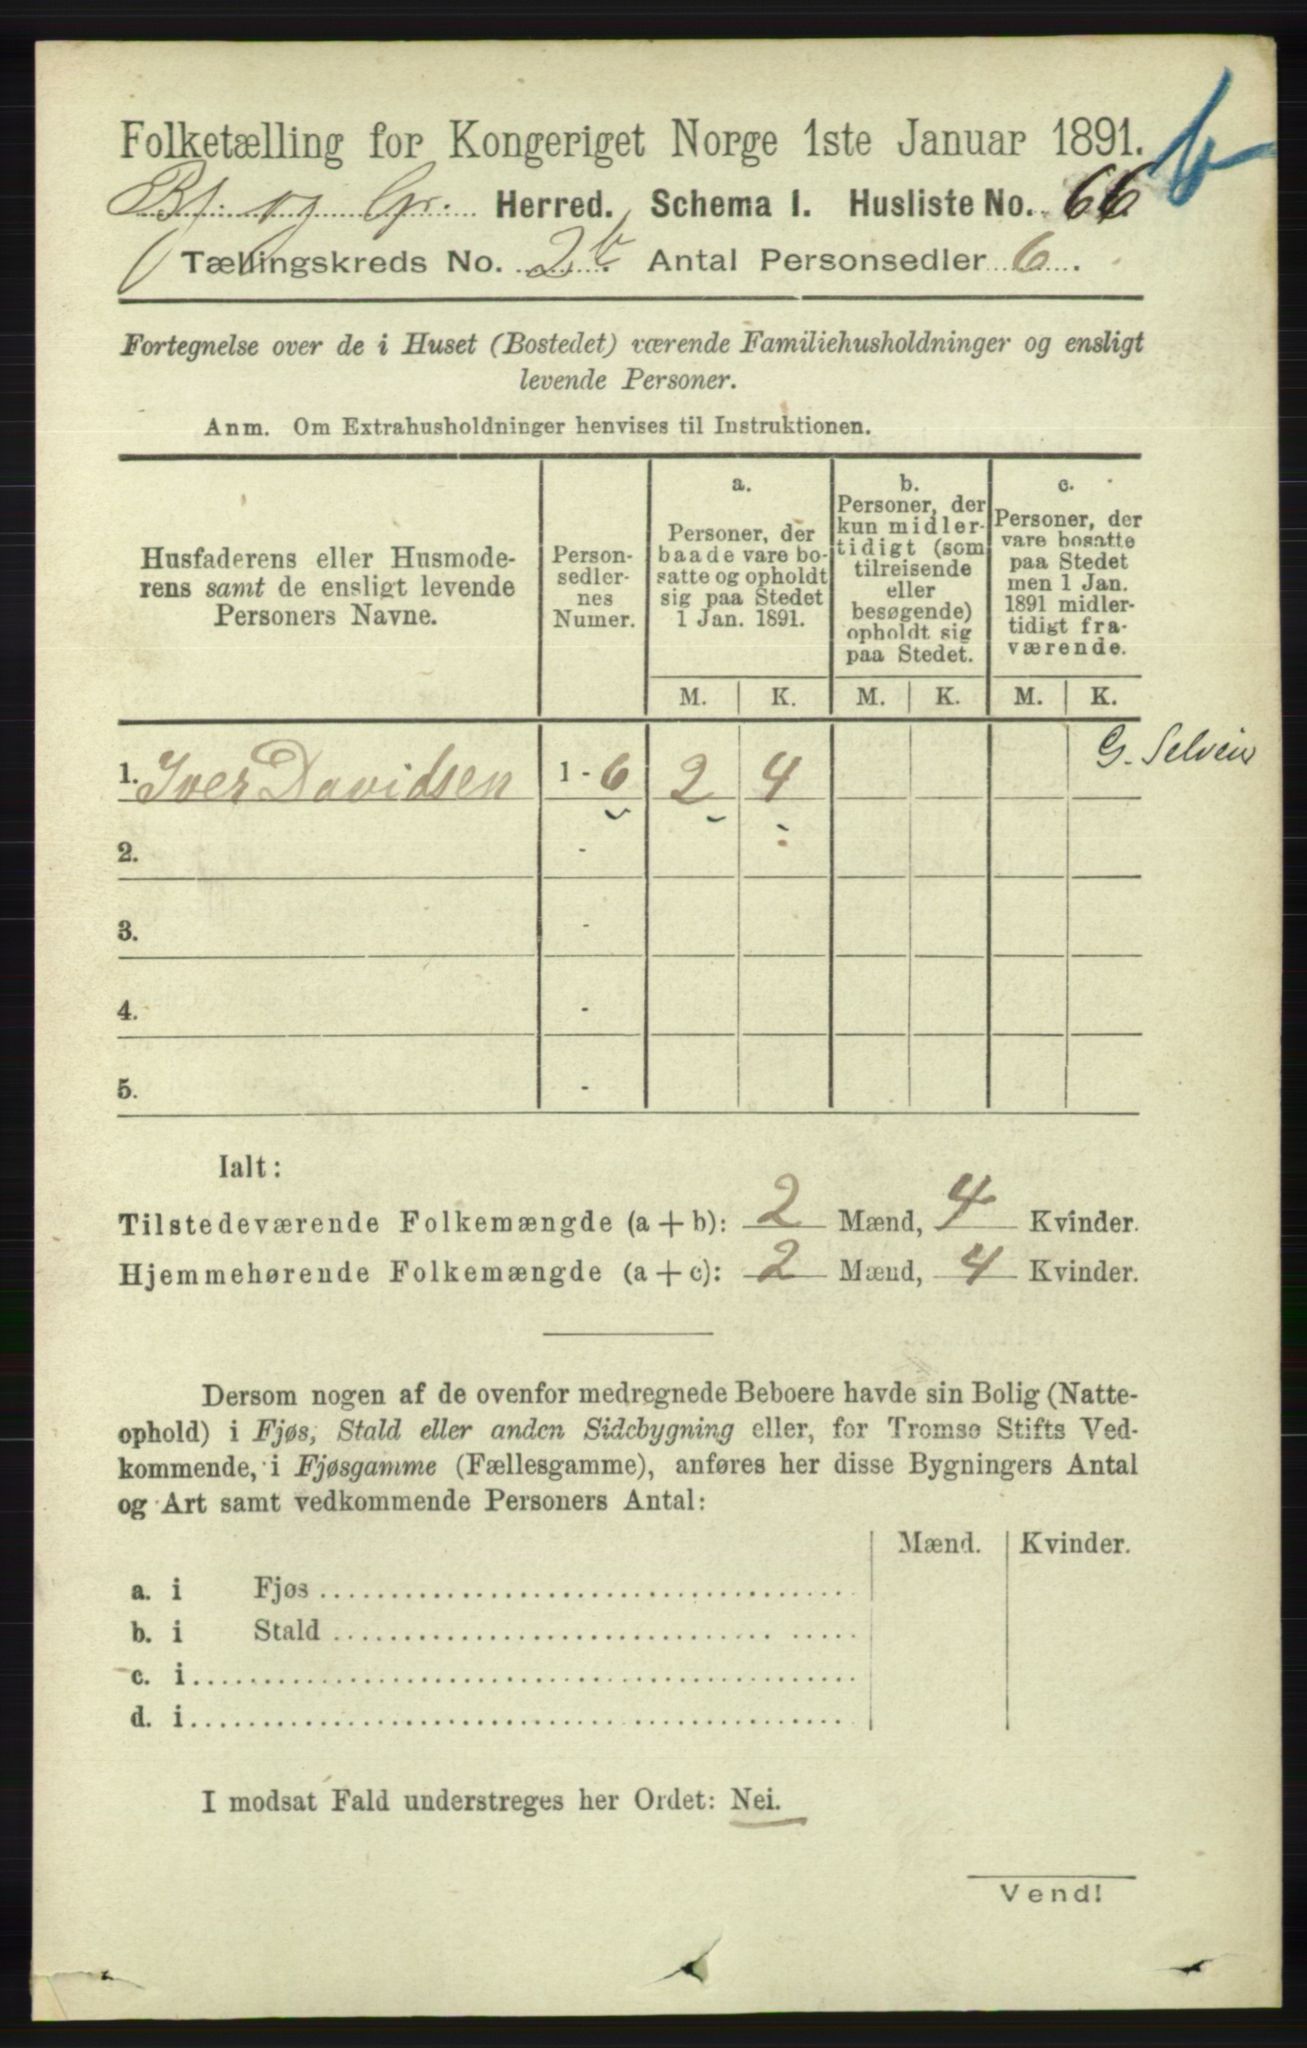 Folketælling for Kongeriget Norge 1ste Januar 1891.
b
Bj. og Gr. Herred. Schema 1. Husliste No. 66
Tællingskreds No. 2b. Antal Personsedler 6.
Fortegnelse over de i Huset (Bostedet) værende Familiehusholdninger og ensligt
levende Personer.
Anm. Om Extrahusholdninger henvises til Instruktionen.
Husfaderens eller Husmode-
rens samt de ensligt levende
Personers Navne.
Person-
sedler-
nes
Numer.
a.
Personer, der
baade vare bo-
satte og opholdt
sig paa Stedet
1 Jan. 1891.
b.
Personer, der
kun midler-
tidigt (som
tilreisende
eller
besøgende)
opholdt sig
paa Stedet.
c.
Personer, der
vare bosatte
paa Stedet
men 1 Jan.
1891 midler-
tidigt fra-
værende.
M. K. M. K. M. K.
G.
1. Iver Davidsen 1 - 6 2 4
2. -
3. -
4. -
5. -
Ialt:
Tilstedeværende Folkemængde (a + b): 2 Mænd, 4 Kvinder.
Hjemmehørende Folkemængde (a + c): 2 Mænd, 4 Kvinder.
Dersom nogen af de ovenfor medregnede Beboere havde sin Bolig (Natte-
ophold) i Fjøs, Stald eller anden Sidebygning eller, for Tromsø Stifts Ved-
kommende, i Fjøsgamme (Fællesgamme), anføres her disse Bygningers Antal
og Art samt vedkommende Personers Antal:
Mænd. Kvinder.
a. i Fjøs
b. i Stald
c. i
d. i
I modsat Fald understreges her Ordet: Nei.
Vend!